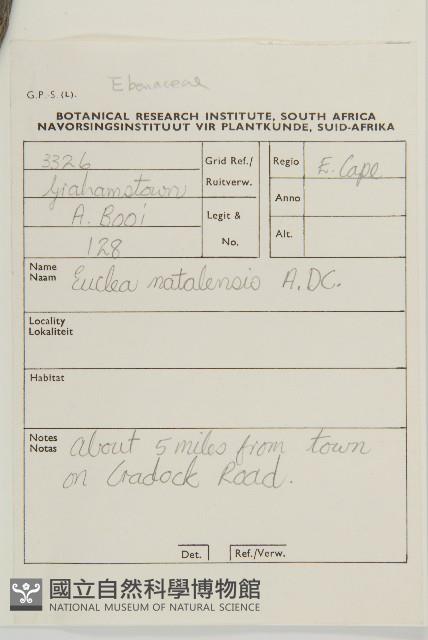 Ebenaceae
G.P.-S. (L).
BOTANICAL RESEARCH INSTITUTE, SOUTH AFRICA
NAVORSINGSINSTITUUT VIR PLANTKUNDE, SUID-AFRIKA
3326
Grid Ref./
Ruitverw.
Grahamstown
A. Booi
Legit &
No.
128
Regio
E. Cape
Anno
Alt.
Name
Naam
Euclea natalensis A.DC.
Locality
Lokaliteit
Habitat
Notes
Notas
about 5 miles from town
on Cradock Road.
Det.
Ref./Verw.
國立自然科學博物館
NATIONAL MUSEUM OF NATURAL SCIENCE